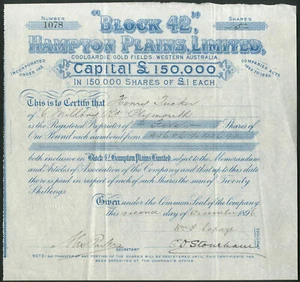 NUMBER
1078
SHARES
"BLOCK 42"
HAMPTON PLAINS, LIMITED,
COOLGARDIE GOLD FIELDS, WESTERN AUSTRALIA.
INCORPORATED UNDER THE
COMPANIES ACTS
Capital £150,000
IN 150,000 SHARES OF £1 EACH.
This is to Certify that
of Plymouth
is the Registered Proprietor of Shares of
One Pound each numbered from
both inclusive in Block 42 Hampton Plains Limited, subject to the Memorandum
and Articles of Association of the Company, and that up to this date
there is paid in respect of each of such Shares the sum of Twenty
Shillings.
Given under the Common Seal of the Company
this second day of December 1896
SECRETARY
NOTE: NO TRANSFER OF ANY PORTION OF THE SHARES WILL BE REGISTERED UNTIL THIS CERTIFICATE HAS
BEEN DEPOSITED AT THE COMPANY'S OFFICE.